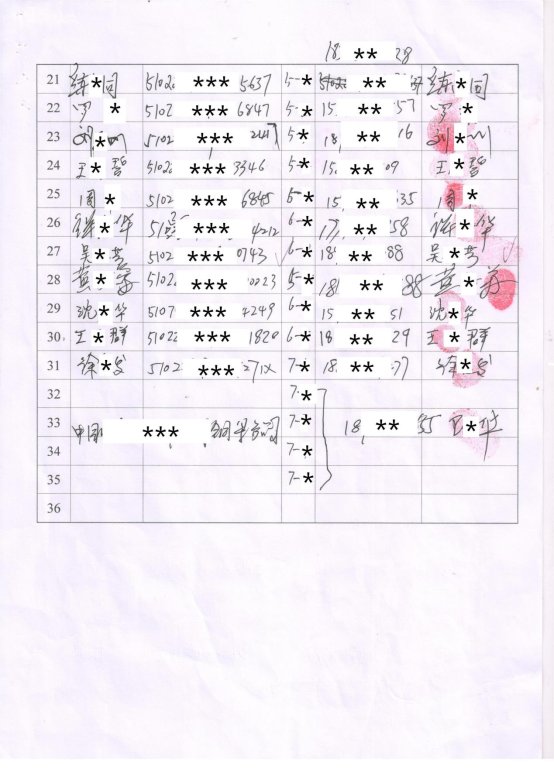 18. ** 28
21 练*同 5102. *** 5637 5-* ** 练*同
22 罗* 5102 *** 6847 5-* 15. ** 57 罗*
23 刘* 5102 *** 5-* 18. ** 16 刘*
24 王*碧 5102. *** 3346 5-* 15. ** 09 王*碧
25 周* 5102 *** 6845 5-* 15. ** 35 周*
26 *华 *** 4212 6-* 17. ** 58 *华
27 吴*芳 5102 *** 0743 6-* 18. ** 88 吴*芳
28 黄* 5102. *** 0023 5-* 18. ** 88 黄*
29 沈*华 5107 *** 4249 6-* 15 ** 51 沈*华
30. 王*群 5102. *** 1820 6-* 18 ** 29 王*群
31 徐* 5102 *** 271X 7-* 18. ** 77 徐*
32 7-*
33 中国 *** 7-* 18. ** 55 *华
34 7-*
35 7-*
36